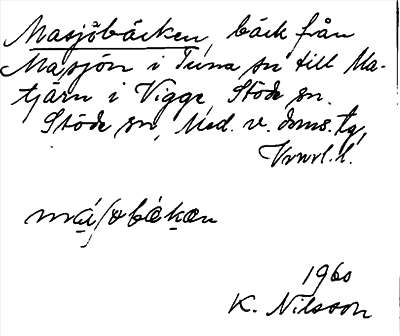 Masjöbäcken, bäck från
Masjön i Tuna sn till Ma-
tjärn i Vigge, Stöde sn.
Stöde sn, Med. v. doms. tg,
Vnrl. l.
1960
K. Nilsson